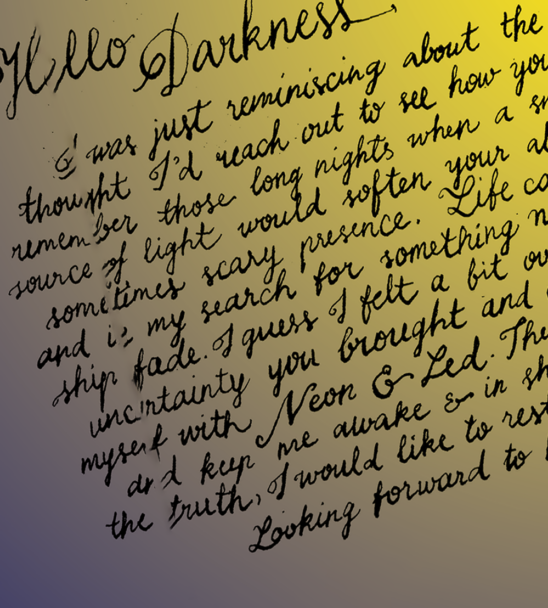 Hello Darkness,
I was just reminiscing about the
thought I'd reach out to see how you
remember those long nights when a
source of light would soften your
sometimes scary presence. Life
and in my search for something
ship fade. I guess I felt a bit
uncertainty you brought and
myself with Neon & Led.
and keep me awake & in
the truth, I would like to
Looking forward to